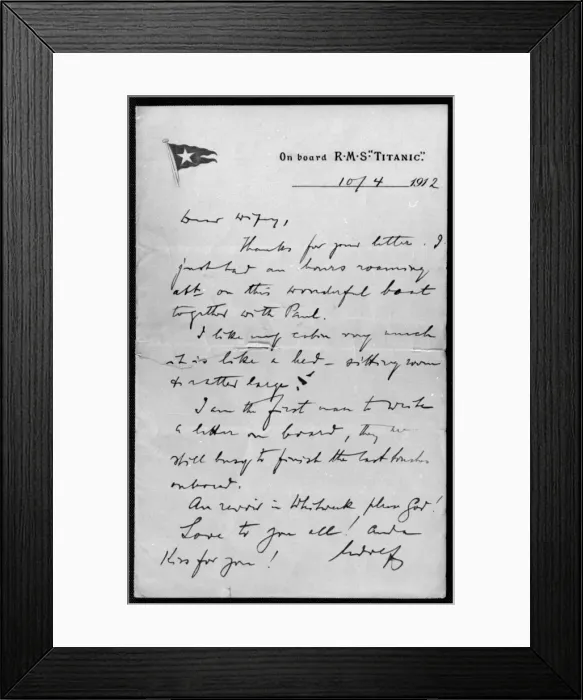 On board R·M·S "TITANIC".
10/4 1912
Dear Wifey,
Thanks for your letter. I
just had an hours roaming
abt. on this wonderful boat
together with Paul.
I like my cabin very much
it is like a bed – sitting room
& rather large.
I am the first man to write
a letter on board, they are
still busy to finish the last touches
onboard.
Au revoir in Whitsunk please God!
Love to you all! And a
Kiss for you! Adolf